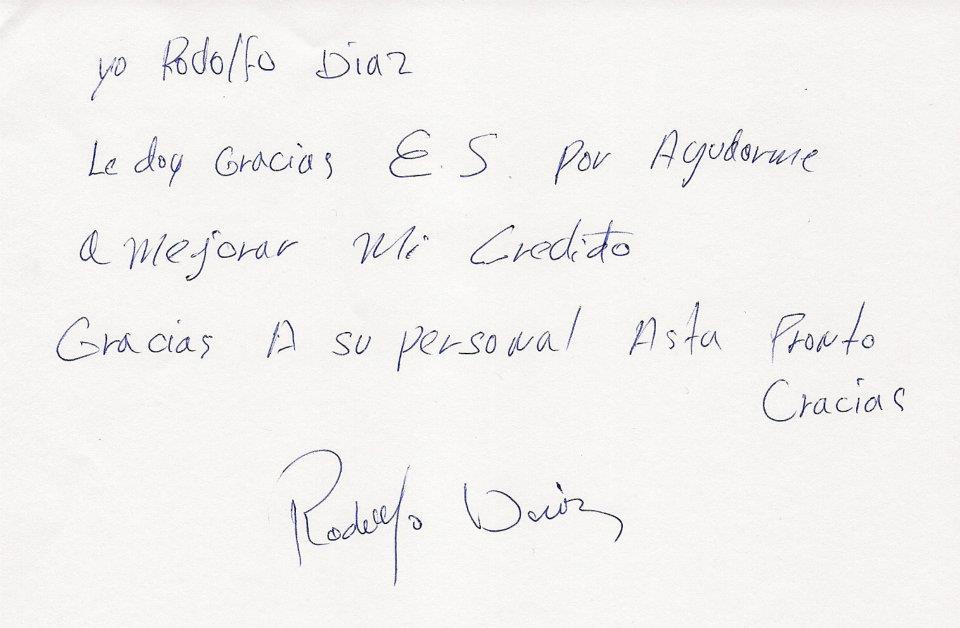 yo Rodolfo Diaz
Le doy Gracias E.S. por Ayudarme
a mejorar Mi Credito
Gracias A su personal Asta Pronto
Gracias
Rodolfo Diaz